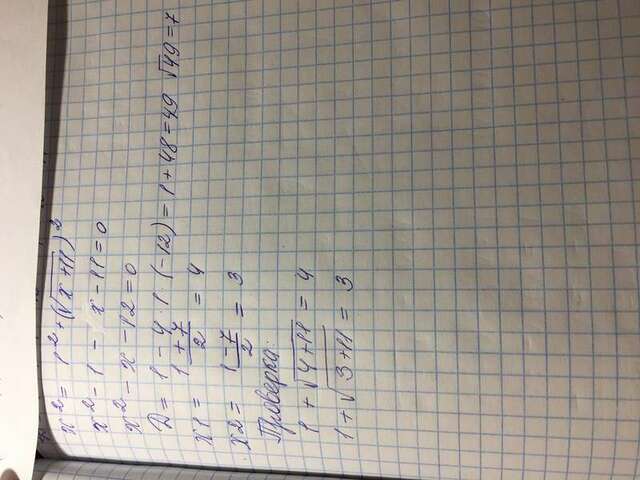 x² = 1² + (√x+11)²
x² - 1 - x - 11 = 0
x² - x - 12 = 0
D = 1 - 4 · 1 · (-12) = 1 + 48 = 49 √49 = 7
x1 = 1+7/2 = 4
x2 = 1-7/2 = 3
Проверка:
1 + √4+11 = 4
1 + √3+11 = 3